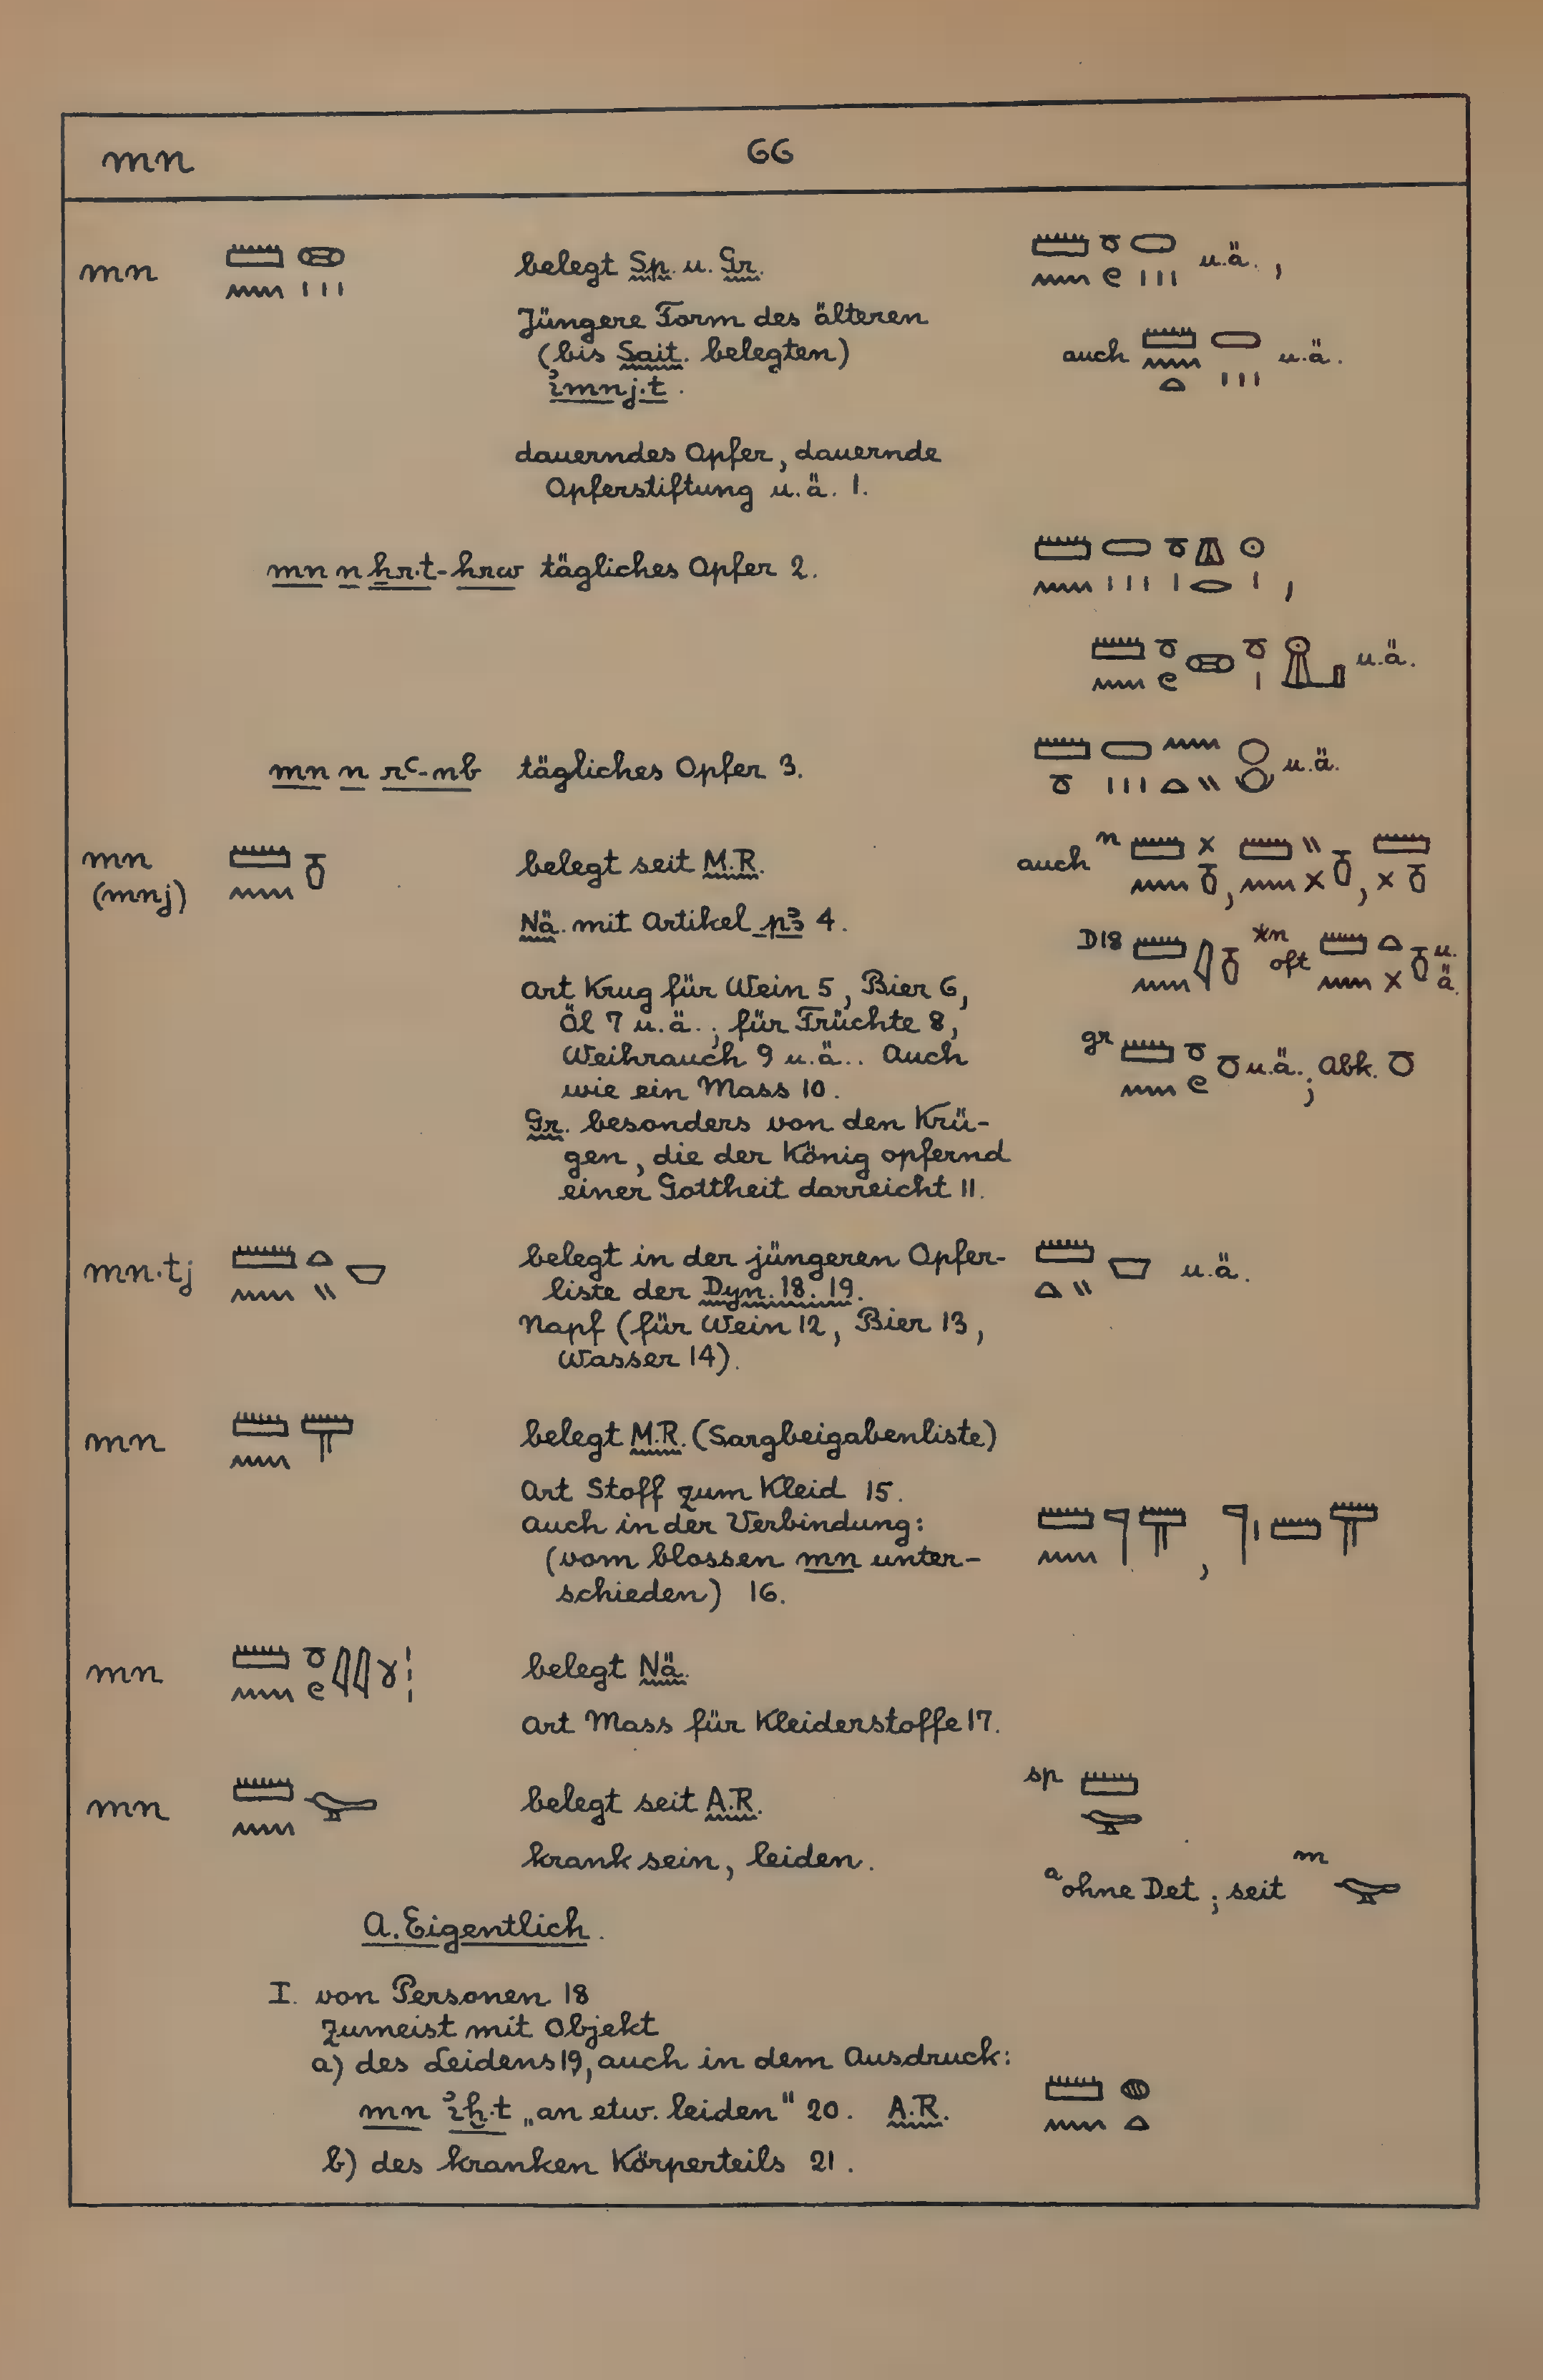 mn 66
mn belegt Sp. u. Gr. u.ä.,
Jüngere Form des älteren
(bis Sait. belegten) auch u.ä.
ꞽmnj.t.
dauerndes Opfer, dauernde
Opferstiftung u.ä. 1.
mn n ẖr.t-hrw tägliches Opfer 2. ,
u.ä.
mn n rꜥ-nb tägliches Opfer 3. u.ä.
mn belegt seit M.R. auch n , ,
(mnj)
Nä. mit Artikel pꜣ 4. D18 *n oft u.ä.
Art Krug für Wein 5, Bier 6,
Öl 7 u.ä.; für Früchte 8,
Weihrauch 9 u.ä.. Auch gr u.ä.; Abk.
wie ein Mass 10.
Gr. besonders von den Krü-
gen, die der König opfernd
einer Gottheit darreicht 11.
mn.tj belegt in der jüngeren Opfer- u.ä.
liste der Dyn. 18. 19.
Napf (für Wein 12, Bier 13,
Wasser 14).
mn belegt M.R. (Sargbeigabenliste)
Art Stoff zum Kleid 15.
Auch in der Verbindung: ,
(vom blossen mn unter-
schieden) 16.
mn belegt Nä.
Art Mass für Kleiderstoffe 17.
mn belegt seit A.R. sp
krank sein, leiden. a ohne Det; seit m
A. Eigentlich.
I. von Personen 18
Zumeist mit Objekt
a) des Leidens 19, auch in dem Ausdruck:
mn ꞽḫ.t „an etw. leiden" 20. A.R.
b) des kranken Körperteils 21.